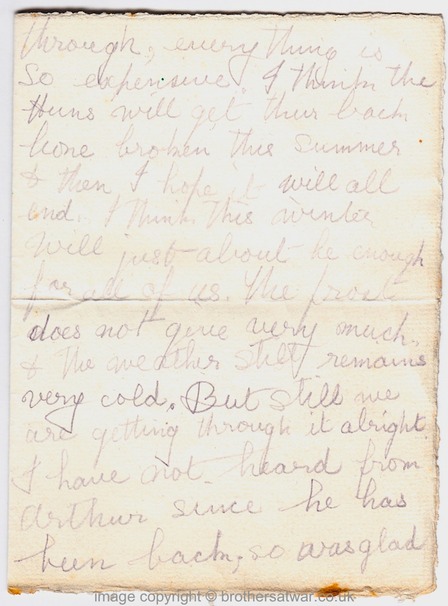 through, everything is
So expensive. I think the
Huns will get their back
bone broken this summer
& then I hope it will all
end. I think this winter
will just about be enough
for all of us. The frost
does not give very much.
& the weather still remains
very cold. But still we
are getting through it alright.
I have not heard from
Arthur since he has
been back, so was glad
image copyright © brothersatwar.co.uk